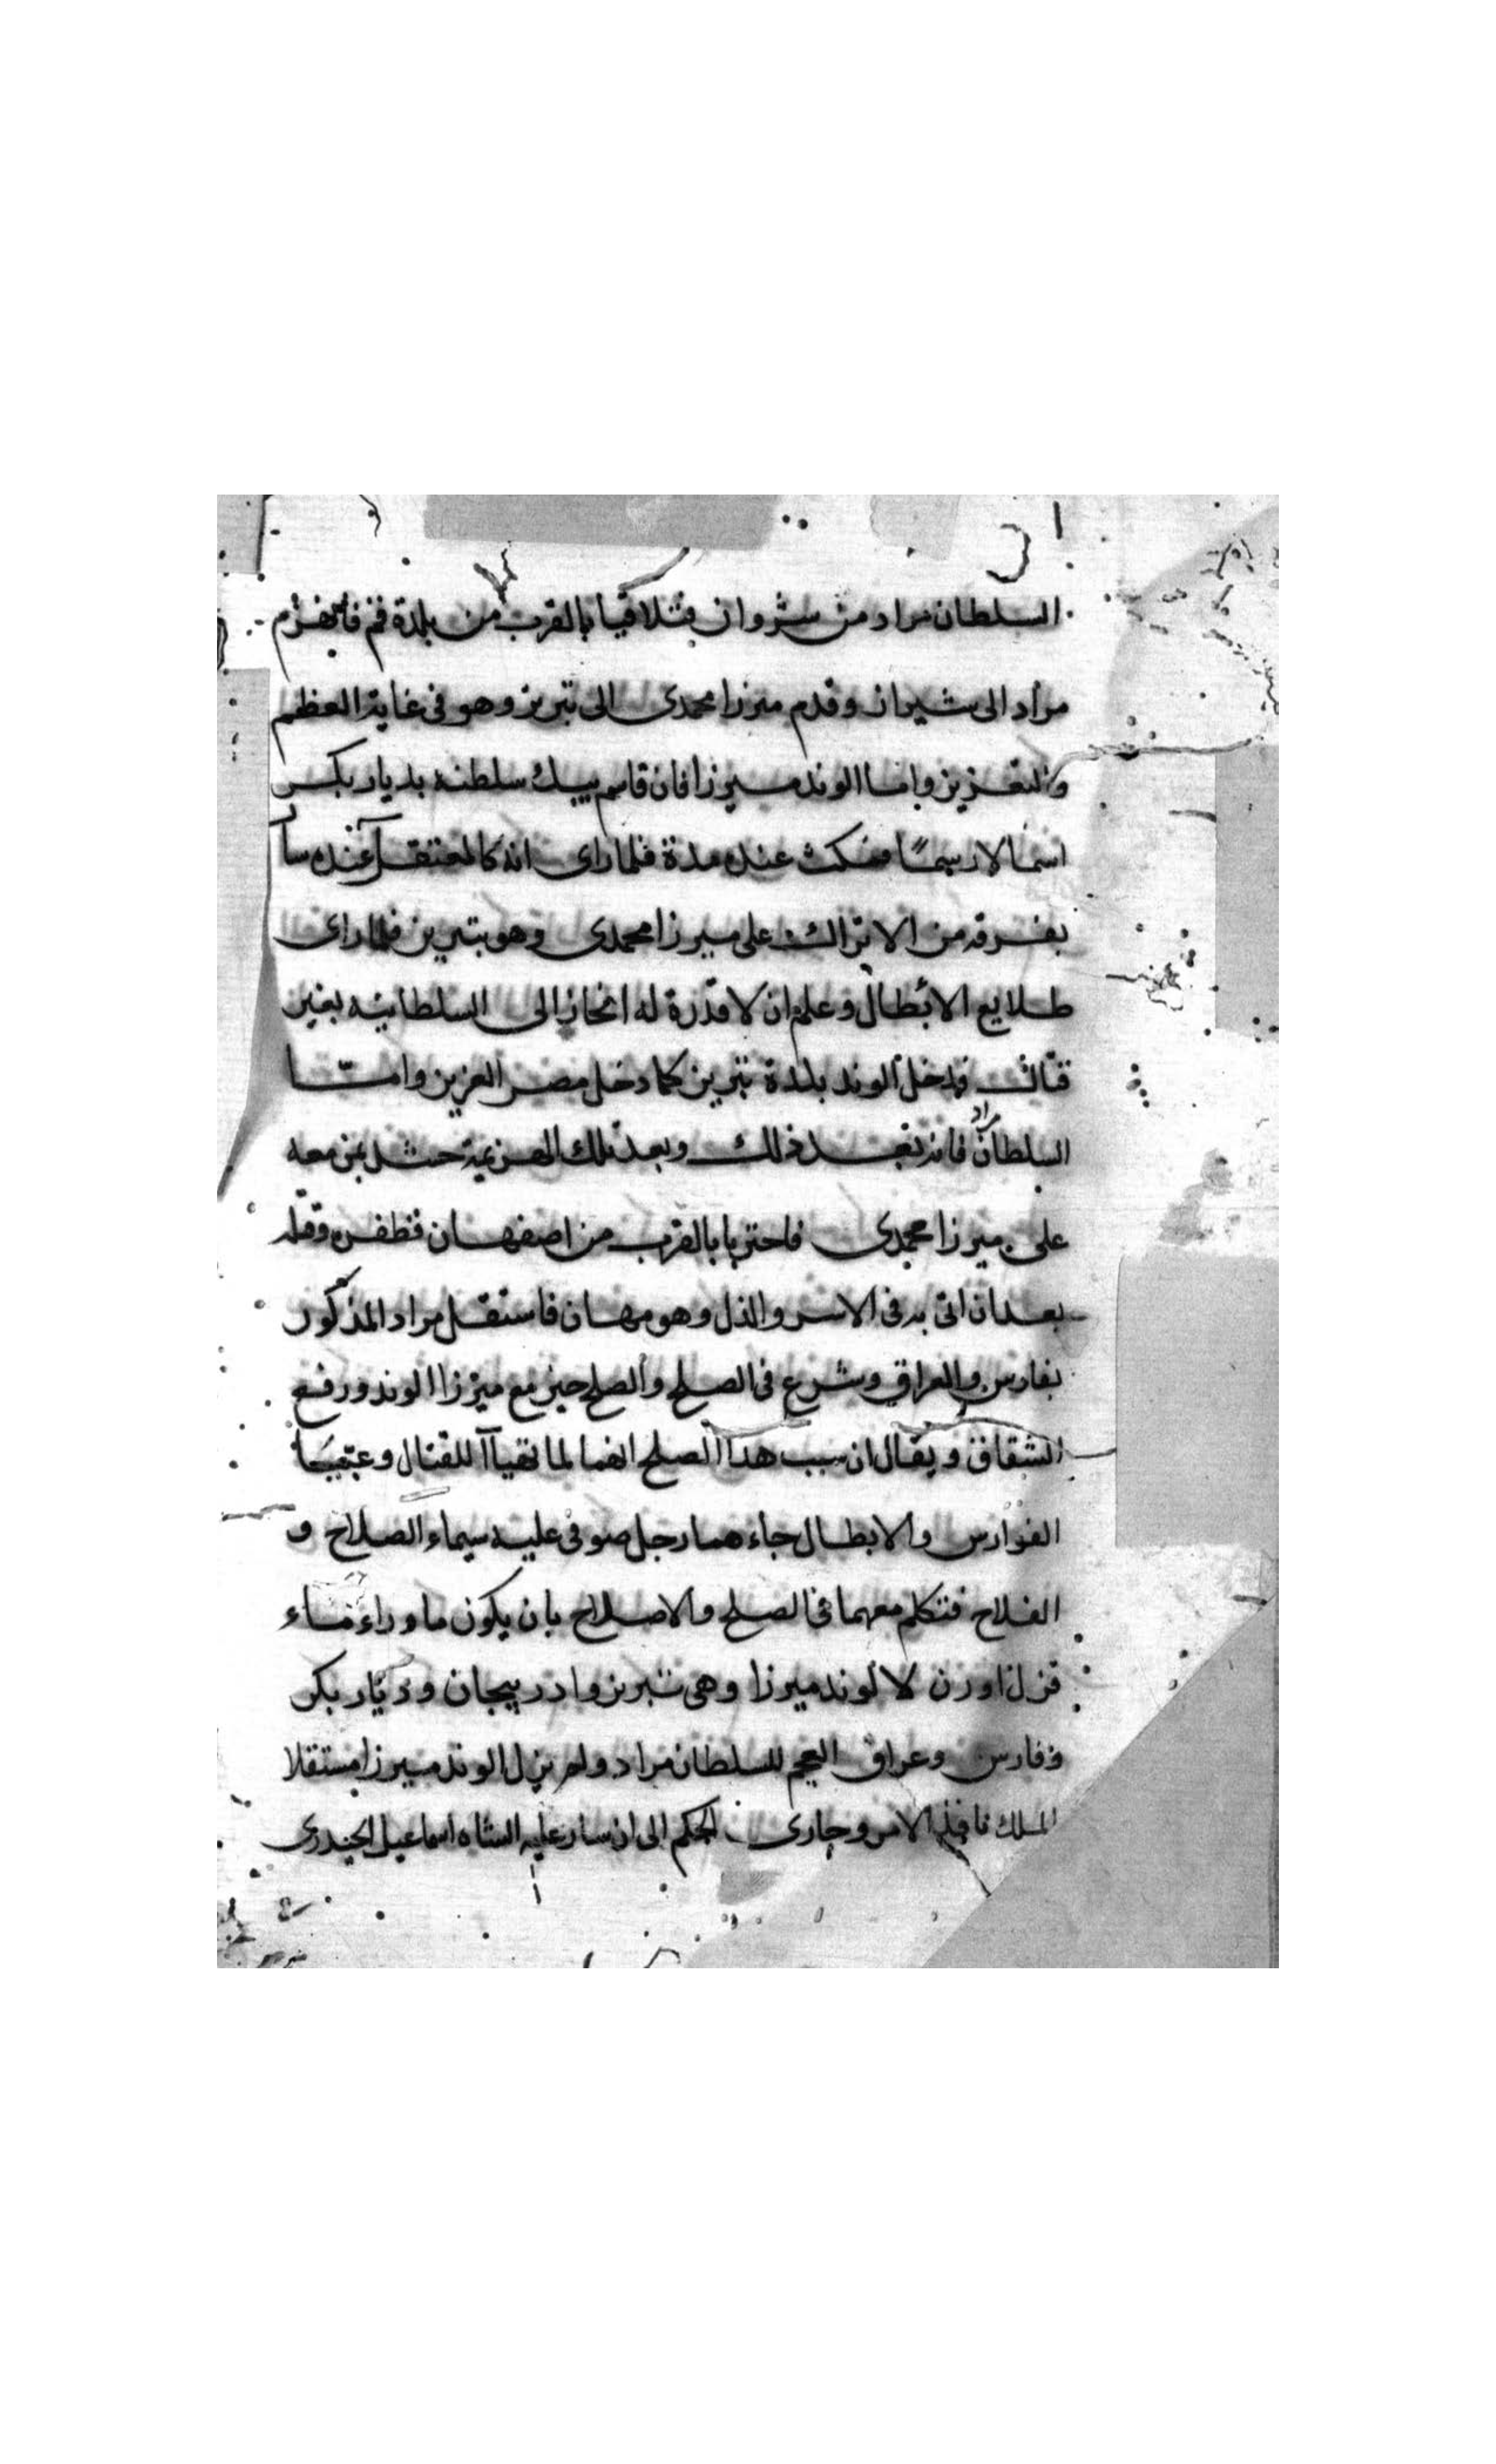 السلطان مراد من شروان فتلاقيا بالقرب من بلدة قم فانهزم
مراد الى شيراز وقدم ميرزا محمدى الى تبريز وهو فى غاية العظم
والتعزيز واما الوند ميرزا فان قاسم بيك سلطنه بديار بكر
اسما لا رسمًا فمكث عنده مدة فلما راى انه كالمعتقل عنده سار
بفرقه من الاتراك على ميرزا محمدى وهو بتبريز فلما راى
طلايع الابطال وعلم ان لا قدرة له انحاز الى السلطانيه بغير
قتال فدخل الوند بلدة تبريز كما دخل مصر العزيز وامّا
السلطان مراد فانه بعد ذلك وبعد تلك الهزيمة حشد بمن معه
على ميرزا محمدى فاحتربا بالقرب من اصفهان فظفر وقتله
بعد ان اتى به فى الاسر والذل وهو مهان فاستقل مراد المذكور
بفارس والعراق وشرع فى الصلح والصلح حين مع ميرزا الوند ورفع
الشقاق ويقال ان سبب هذا الصلح انهما لما تهيأا للقتال وعبّيا
الفوارس والابطال جاءهما رجل صوفى عليه سيماء الصلاح و
الفلاح فتكلم معهما فى الصلح والاصلاح بان يكون ما وراء ماء
قزل اوزن لالوند ميرزا وهى تبريز وادربيجان وديار بكر
وفارس وعراق العجم للسلطان مراد ولم يزل الوند ميرزا مستقلا
الملك نافذ الامر وجارى الحكم الى ان سار عليه الشاه اسماعيل الحيدرى